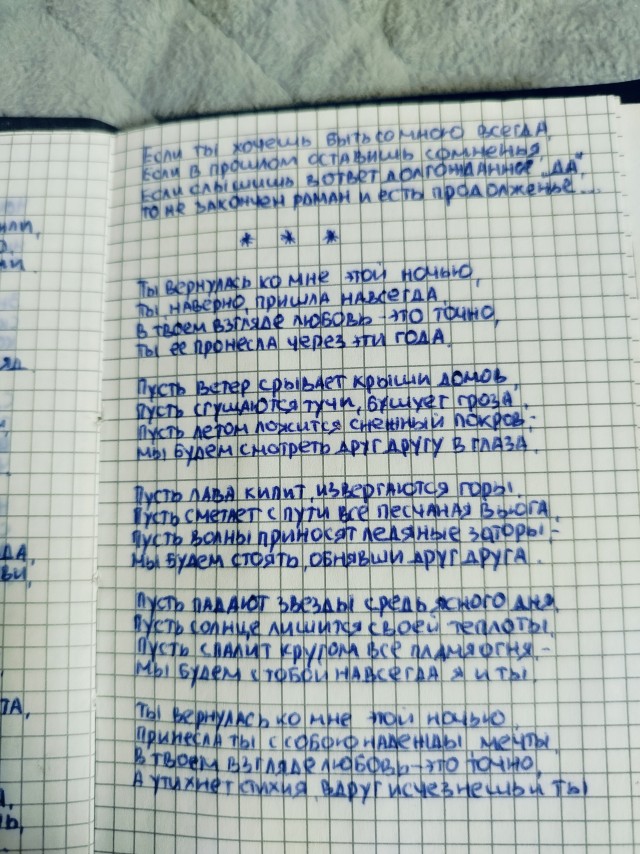 Если ты хочешь быть со мною всегда,
Если в прошлом оставишь сомненья,
Если слышишь в ответ долгожданное „ДА",
То не закончен роман и есть продолженье...
* * *
Ты вернулась ко мне этой ночью,
Ты, наверно, пришла навсегда.
В твоем взгляде любовь-это точно,
Ты ее пронесла через эти года.
Пусть ветер срывает крыши домов,
Пусть сгущаются тучи, бушует гроза.
Пусть летом ложится снежный покров,-
Мы будем смотреть друг другу в глаза.
Пусть лава кипит, извергаются горы,
Пусть сметает с пути все песчаная вьюга,
Пусть волны приносят ледяные заторы,-
Мы будем стоять, обнявши друг друга.
Пусть падают звезды средь ясного дня,
Пусть солнце лишится своей теплоты,
Пусть спалит кругом все пламя огня,-
Мы будем с тобой навсегда я и ты.
Ты вернулась ко мне этой ночью,
Принесла ты с собою надежды мечты.
В твоем взгляде любовь-это точно,
А утихнет стихия, вдруг исчезнешь и ты
или,
ЯД
ДА,
ВИ,
ТА,